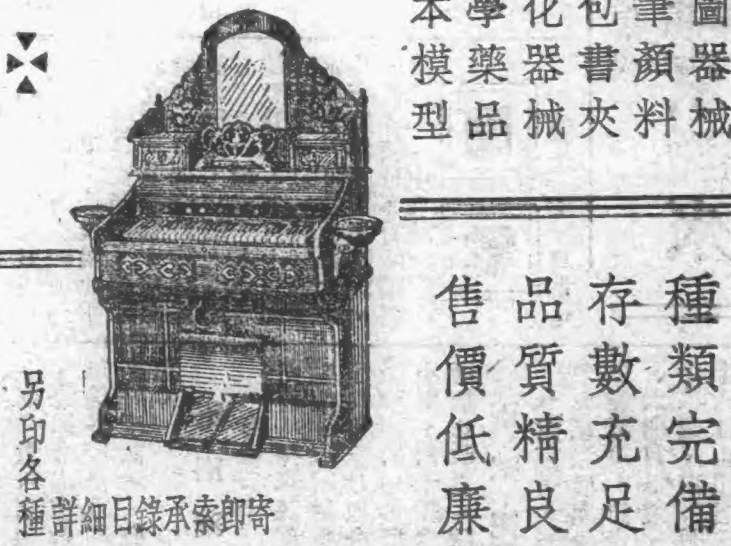 圖器械
筆顏料
包書夾
化器械
學藥品
本模型
種類完備
存數充足
品質精良
售價低廉
另印各
種詳細目錄承索卽寄